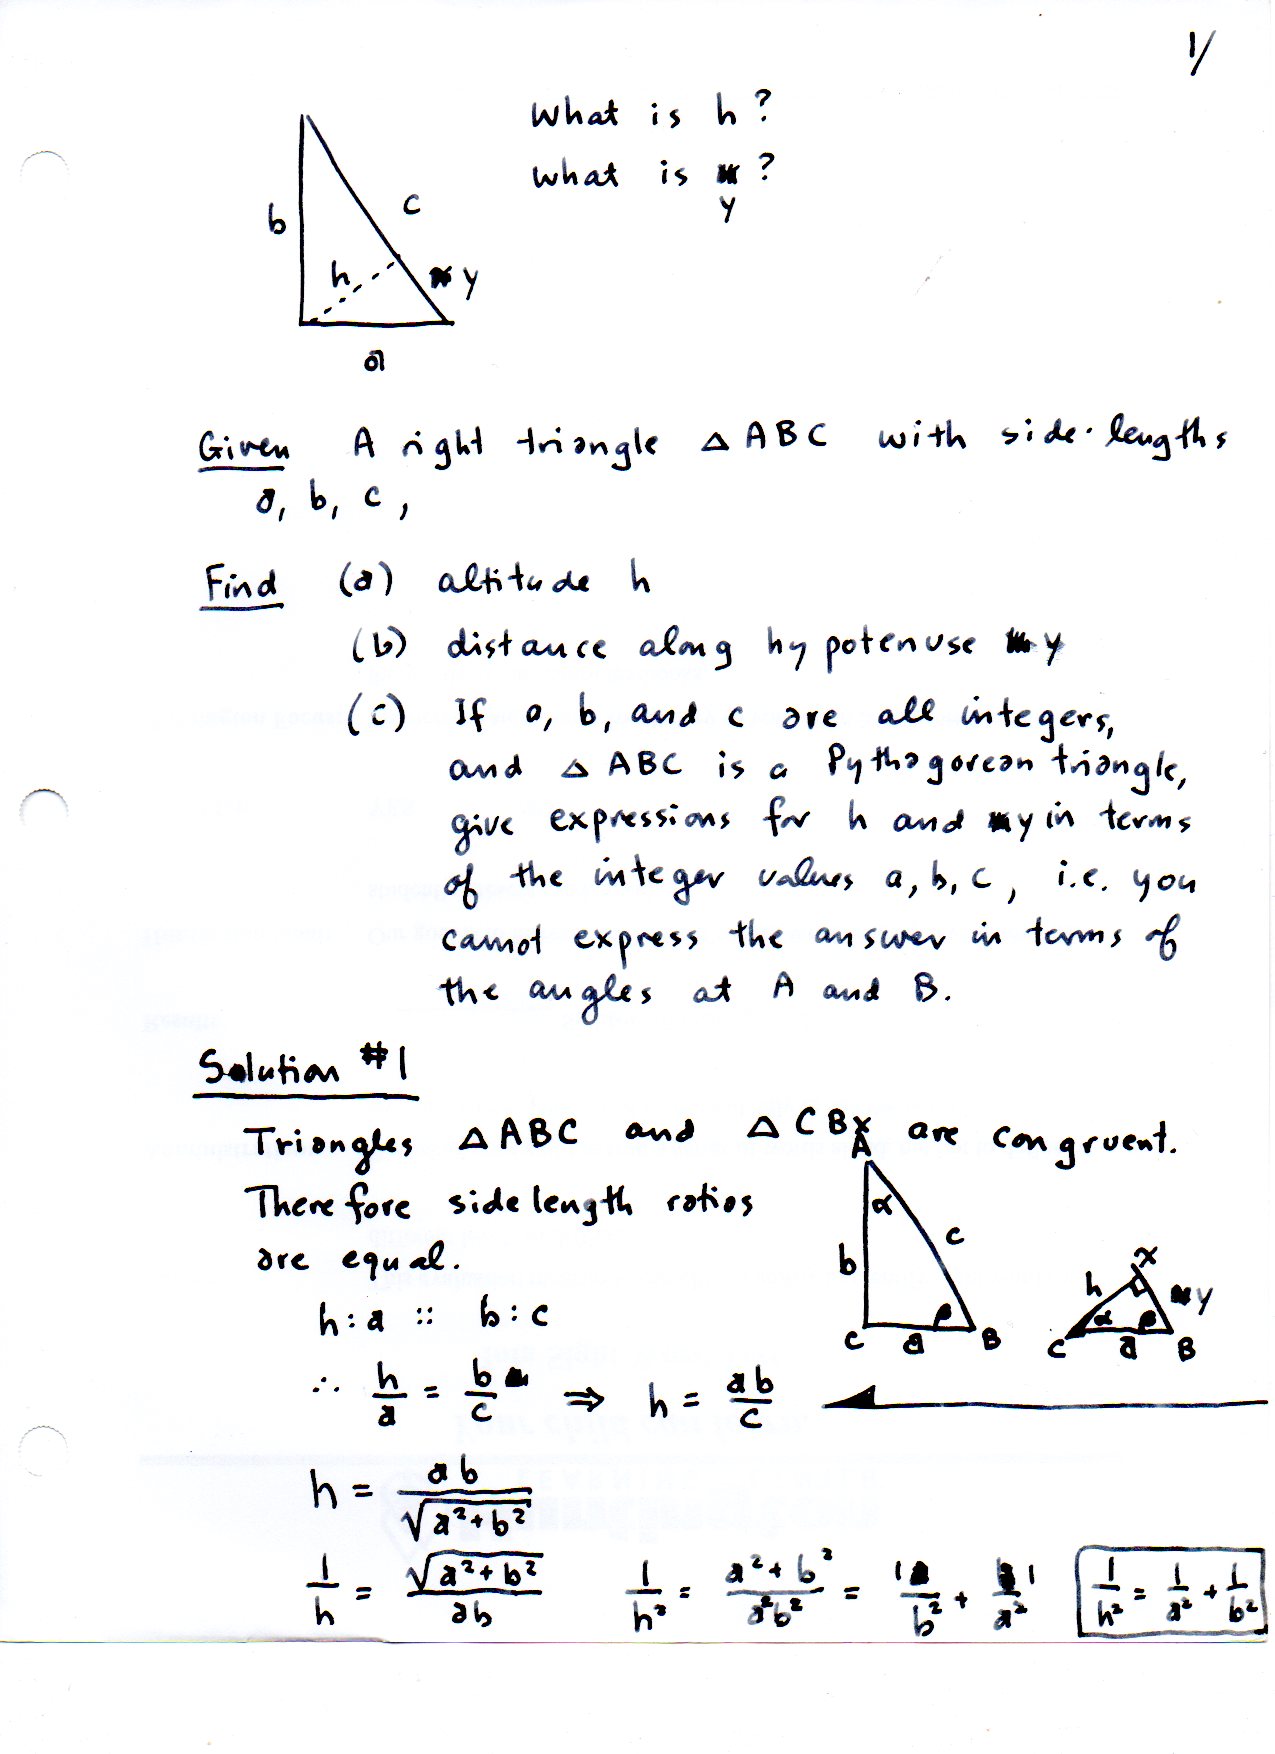 1/
What is h?
What is y?
b
c
h
y
a
Given A right triangle △ABC with side-lengths
a, b, c,
Find (a) altitude h
(b) distance along hypotenuse y
(c) If a, b, and c are all integers,
and △ABC is a Pythagorean triangle,
give expressions for h and y in terms
of the integer values a, b, c, i.e. you
cannot express the answer in terms of
the angles at A and B.
Solution #1
Triangles △ABC and △CBX are congruent.
Therefore side length ratios
are equal.
A
α
b
c
β
C a B
X
h
y
α β
C a B
h:a :: b:c
∴ h/a = b/c ⇒ h = ab/c
h = ab/√(a²+b²)
1/h = √(a²+b²)/ab 1/h² = (a²+b²)/(a²b²) = 1/b² + 1/a² 1/h² = 1/a² + 1/b²